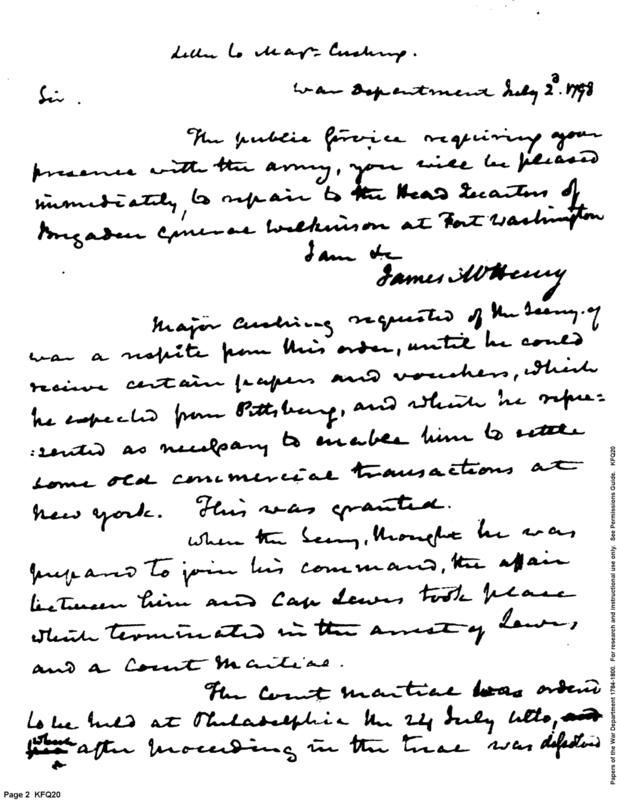 Letter to Majr Cushing.
War Department July 2d. 1798
Sir.
The public service requiring your
presence with the army, you will be pleased
immediately, to repair to the Head Quarters of
Brigadier General Wilkinson at Fort Washington
I am &c
James McHenry
Major Cushing requested of the Secry. of
war a respite from this order, until he could
recieve certain papers and vouchers, which
he expected from Pittsburg, and which he repre=
:sented as necessary to enable him to settle
some old commercial transactions at
New York. This was granted.
When the Secry, thought he was
prepared to join his command, the affair
between him and Cap Lewis took place
which terminated in the arrest of Lewis,
and a Court Martial.
The Court Martial was ordered
to be held at Philadelphia the 24 July ulto, and
where after proceeding in the trial was
Page 2 KFQ20
Papers of the War Department 1784-1800. For research and instructional use only. See Permissions Guide. KFQ20